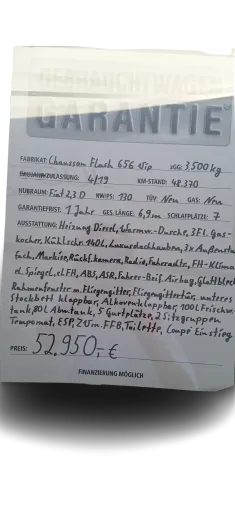 GEBRAUCHTWAGEN
GARANTIE
FABRIKAT: Chausson Flash 656 Vip ZGG: 3.500 kg
ZULASSUNG: 4/19 KM-STAND: 48.370
HUBRAUM: Fiat 2,3 D KW/PS: 130 TÜV: Neu GAS: Neu
GARANTIEFRIST: 1 Jahr GES. LÄNGE: 6,9m SCHLAFPLÄTZE: 7
AUSSTATTUNG: Heizung Diesel, Warmw.-Dusche, 3Fl. Gas-
kocher, Kühlschr. 140L, Ausendachhauben, 3x Außenstau-
fach, Markise, Rückf.kamera, Radio, Fahrradtr., FH-Klima
el. Spiegel, el FH, ABS, ASR, Fahrer-Beif. Airbag,
Rahmenfenster m. Fliegengitter, Fliegengittertür, unteres
Stockbett klappbar, Alkoven klappbar, 100L Frischw.
tank, 80L Abw.tank, 5 Gurtplätze, 2 Sitzgruppen
Tempomat, ESP, ZV m. FFB, Toilette, Coupé Einstieg
PREIS: 52.950,- €
FINANZIERUNG MÖGLICH